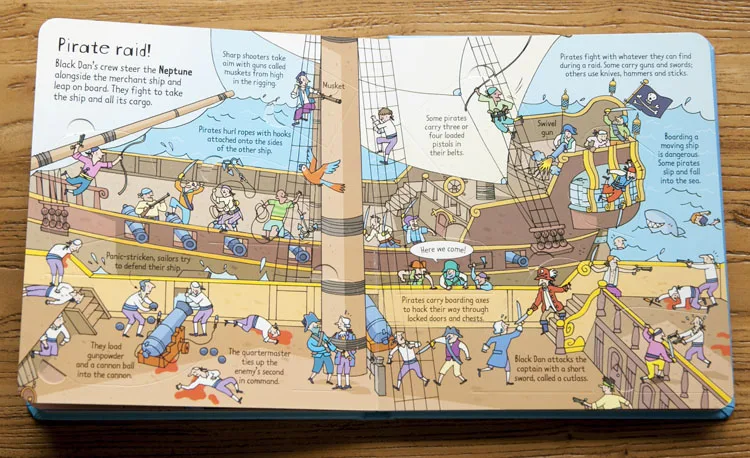 Pirate raid!
Black Dan's crew steer the Neptune
alongside the merchant ship and
leap on board. They fight to take
the ship and all its cargo.
Sharp shooters take
aim with guns called
muskets from high
in the rigging.
Musket
Pirates hurl ropes with hooks
attached onto the sides
of the other ship.
Some pirates
carry three or
four loaded
pistols in
their belts.
Pirates fight with whatever they can find
during a raid. Some carry guns and swords;
others use knives, hammers and sticks.
Swivel
gun
Boarding a
moving ship
is dangerous.
Some pirates
slip and fall
into the sea.
Here we come!
Panic-stricken, sailors try
to defend their ship
Pirates carry boarding axes
to hack their way through
locked doors and chests.
They load
gunpowder
and a cannon ball
into the cannon.
The quartermaster
ties up the
enemy's second
in command.
Black Dan attacks the
captain with a short
sword, called a cutlass.